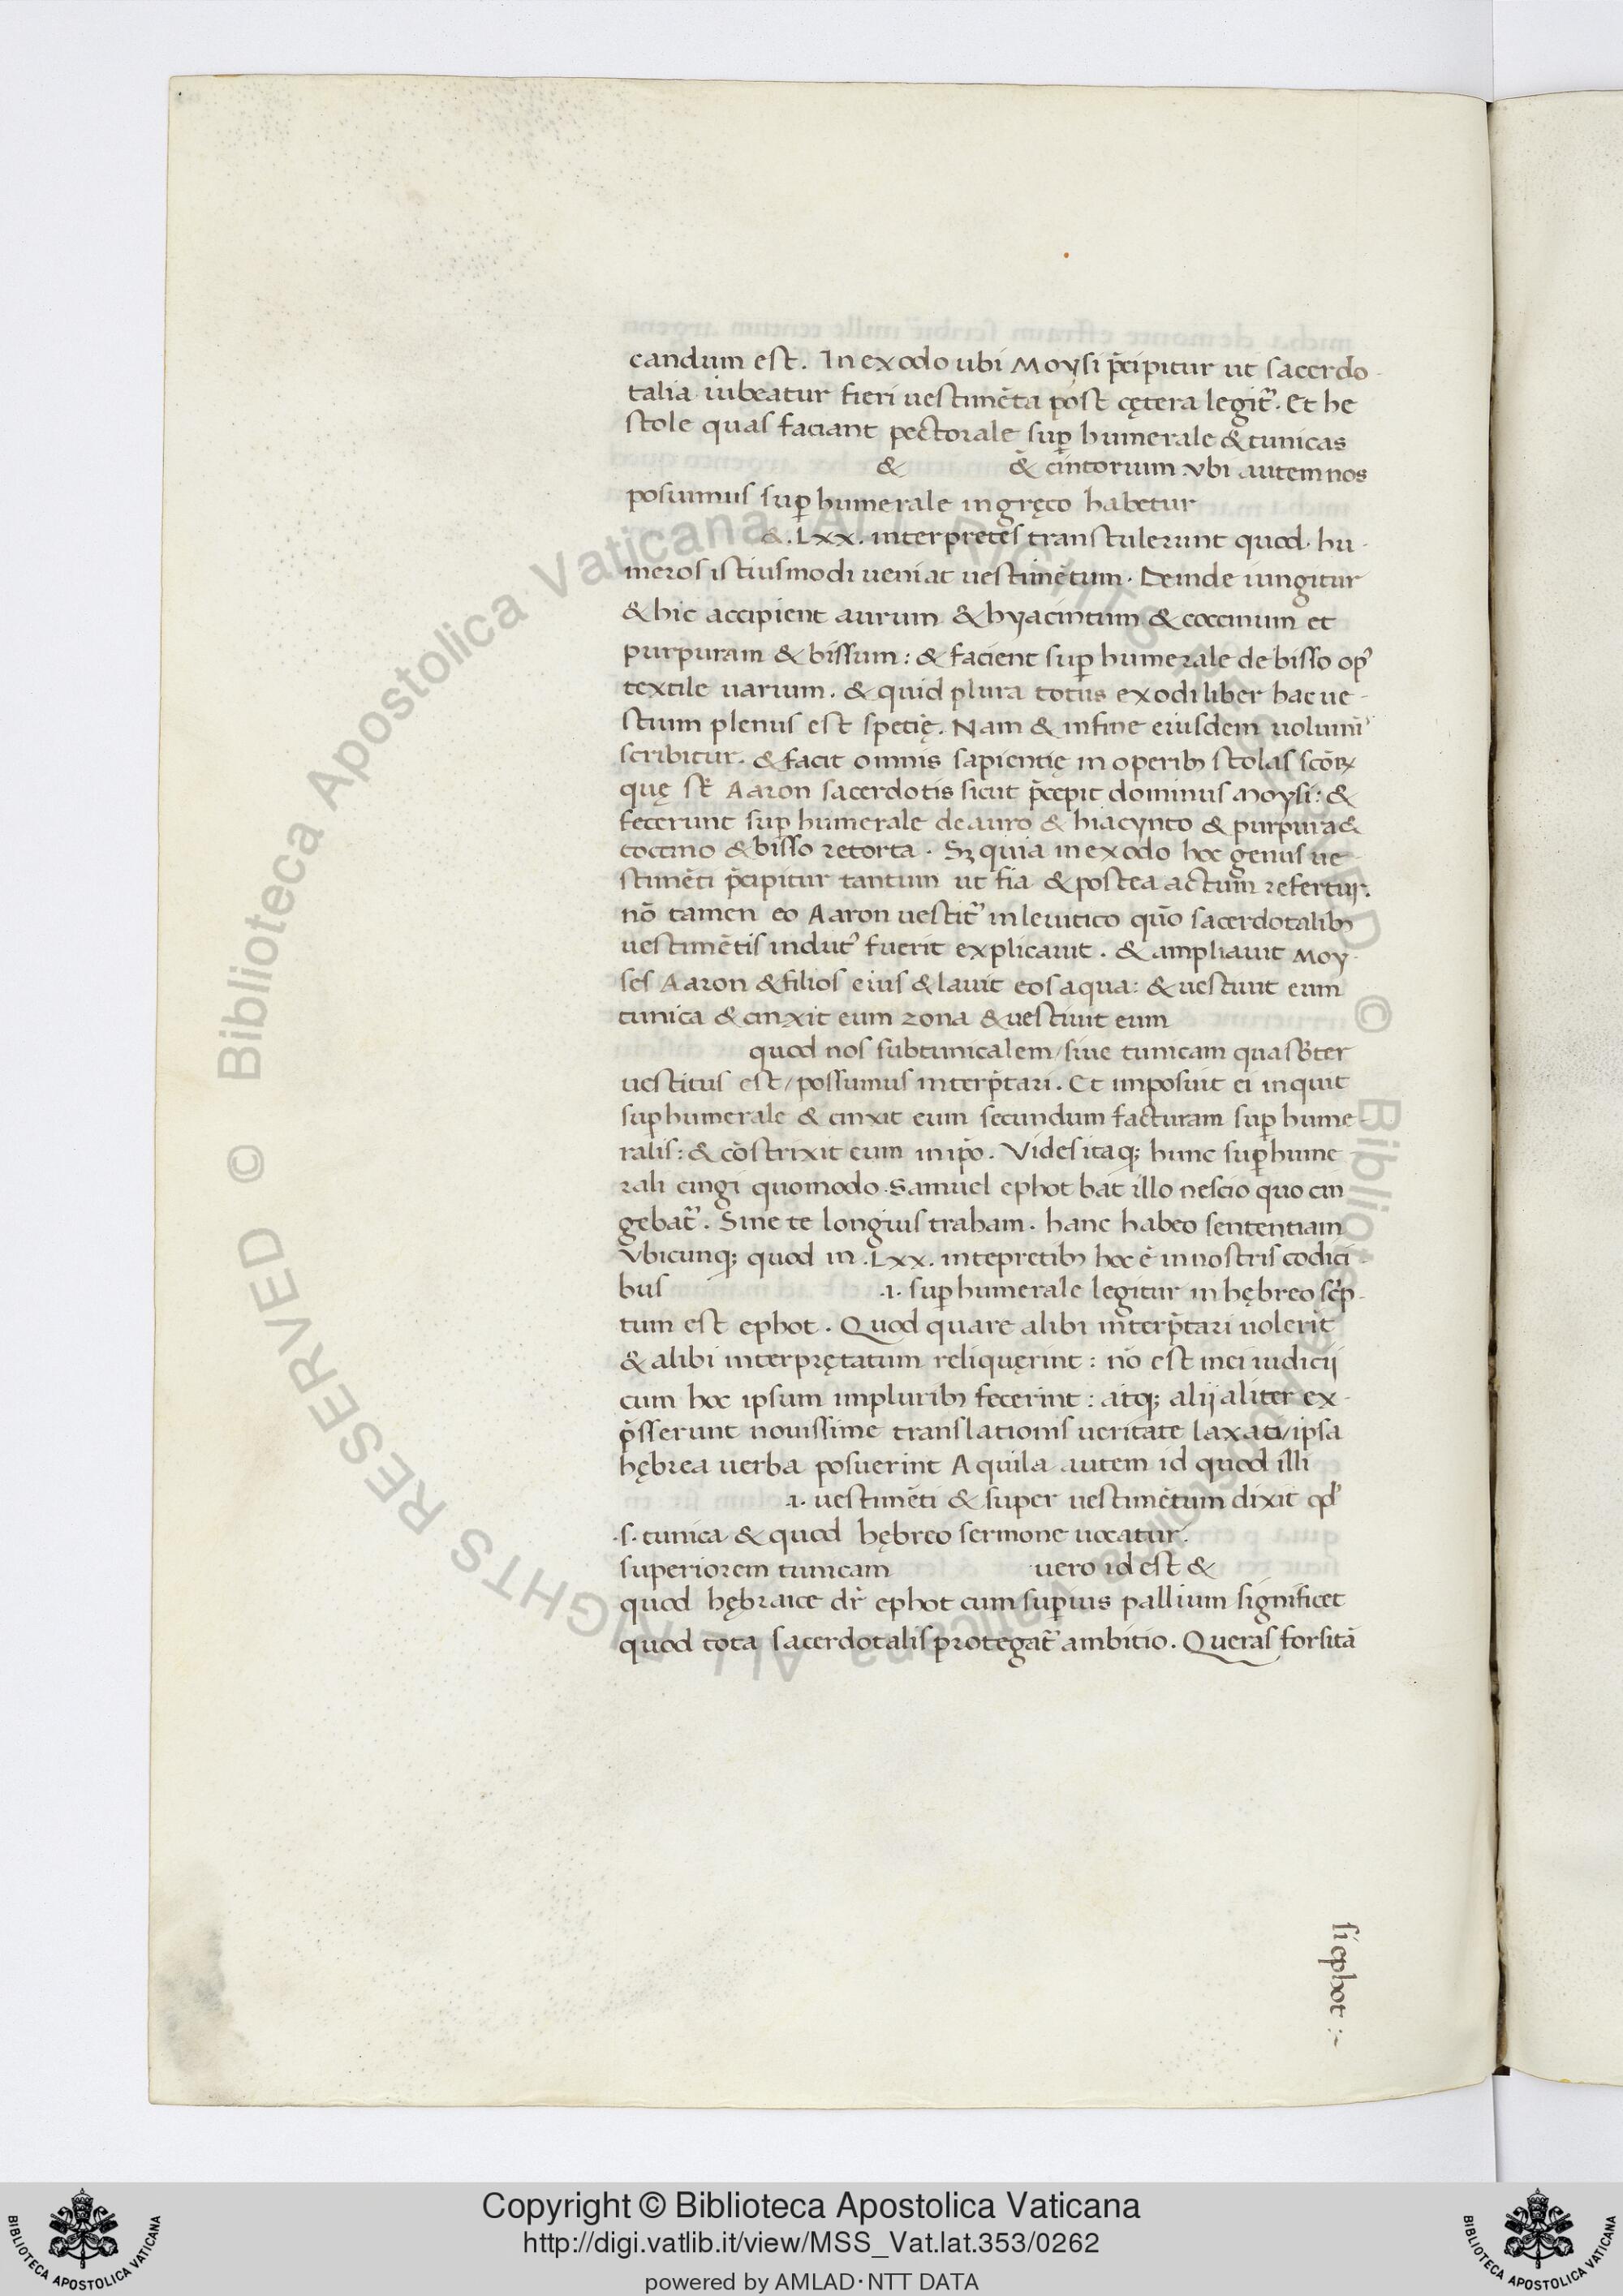 candum est. In exodo ubi Moysi p̄cipitur ut sacerdo-
talia iubeatur fieri uestimēta post cętera legit᷒. Et he
stole quas faciant pectorale suꝑ humerale & tunicas
& & cintorium vbi autem nos
posuimus suꝑ humerale in gręco habetur
&. Lxx. interpretes transtulerunt quod hu-
meros istiusmodi ueniat uestimētum. Deinde iungitur
& hic accipient aurum & hyacintum & coccinum et
purpuram & bissum: & facient suꝑ humerale de bisso op᷒
textile uarium. & quid plura totus exodi liber hac ue-
stium plenus est specię. Nam & in fine eiusdem uolumī᷒
scribitur. & facit omnis sapientię in operibꝫ stolas scōꝝ
quę st̄ Aaron sacerdotis sicut p̄cepit dominus Moysi: &
fecerunt suꝑ humerale de auro & hiacynto & purpura &
coccino & bisso retorta. Sꝫ quia in exodo hoc genus ue-
stimēti p̄cipitur tantum ut fia & postea actum refertur.
nō tamen eo Aaron uestit᷒ in leuitico quō sacerdotalibꝫ
uestimētis indut᷒ fuerit explicauit. & ampliauit Moy-
ses Aaron & filios eius & lauit eos aqua: & uestiuit eum
tunica & cinxit eum zona & uestiuit eum
quod nos subtunicalem/siue tunicam qua sb̄ter
uestitus est/possumus interp̄tari. Et imposuit ei inquit
suꝑhumerale & cinxit eum secundum facturam suꝑ hume-
ralis: & cōstrixit eum in ip̄o. Vides itaqꝫ hunc suꝑhume
rali cingi quomodo Samuel ephot bat illo nescio quo cin
gebat᷒. Sine te longius traham. hanc habeo sententiam
Vbicunqꝫ quod in .Lxx. intepretibꝫ hoc ē in nostris codici-
bus .i. suꝑhumerale legitur in hębreo sc̄p-
tum est ephot. Quod quare alibi interp̄tari uolerīt
& alibi interprętatum reliquęrint: nō est mei iudicij
cum hoc ipsum impluribꝫ fecerint: atqꝫ alij aliter ex-
p̄sserunt nouissime translationis ueritate laxati/ipsa
hębrea uerba posuerint Aquila autem id quod illi
.i. uestimēti & super uestimētum dixit qd᷒
.s. tunica & quod hębreo sermone uocatur.
superiorem tunicam uero id est &
quod hębraice dr̄ ephot cum suꝑius pallium significet
quod tota sacerdotalis protegat᷒ ambitio. Queras forsitā
si ephot :-
Copyright © Biblioteca Apostolica Vaticana
http://digi.vatlib.it/view/MSS_Vat.lat.353/0262
powered by AMLAD·NTT DATA
BIBLIOTECA APOSTOLICA VATICANA
BIBLIOTECA APOSTOLICA VATICANA
© Biblioteca Apostolica Vaticana ALL RIGHTS RESERVED © Biblioteca Apostolica Vaticana ALL RIGHTS RESERVED